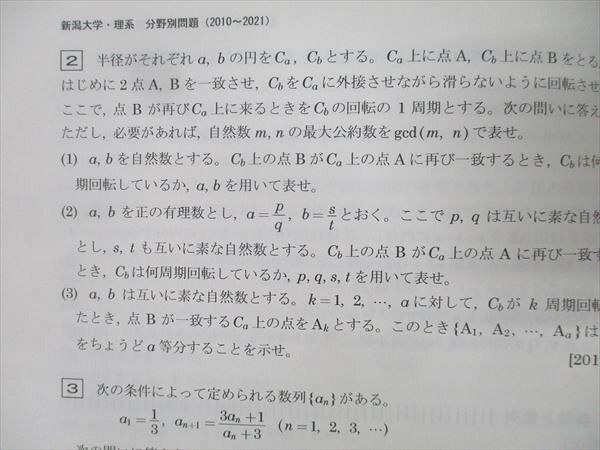 新潟大学・理系 分野別問題（2010～2021）
2 半径がそれぞれ a, b の円を Ca, Cb とする。Ca 上に点 A, Cb 上に点 B をとる
はじめに 2 点 A, B を一致させ, Cb を Ca に外接させながら滑らないように回転させ
ここで, 点 B が再び Ca 上に来るときを Cb の回転の 1 周期とする。次の問いに答え
ただし, 必要があれば, 自然数 m, n の最大公約数を gcd(m, n) で表せ。
(1) a, b を自然数とする。Cb 上の点 B が Ca 上の点 A に再び一致するとき, Cb は何
期回転しているか, a, b を用いて表せ。
(2) a, b を正の有理数とし, a = p/q , b = s/t とおく。ここで p, q は互いに素な自然
とし, s, t も互いに素な自然数とする。Cb 上の点 B が Ca 上の点 A に再び一致す
とき, Cb は何周期回転しているか, p, q, s, t を用いて表せ。
(3) a, b は互いに素な自然数とする。k = 1, 2, …, a に対して, Cb が k 周期回転
たとき, 点 B が一致する Ca 上の点を Ak とする。このとき {A1, A2, …, Aa} は
をちょうど a 等分することを示せ。
[201
3 次の条件によって定められる数列 {an} がある。
a1 = 1/3, an+1 = (3an + 1)/(an + 3) (n = 1, 2, 3, …)